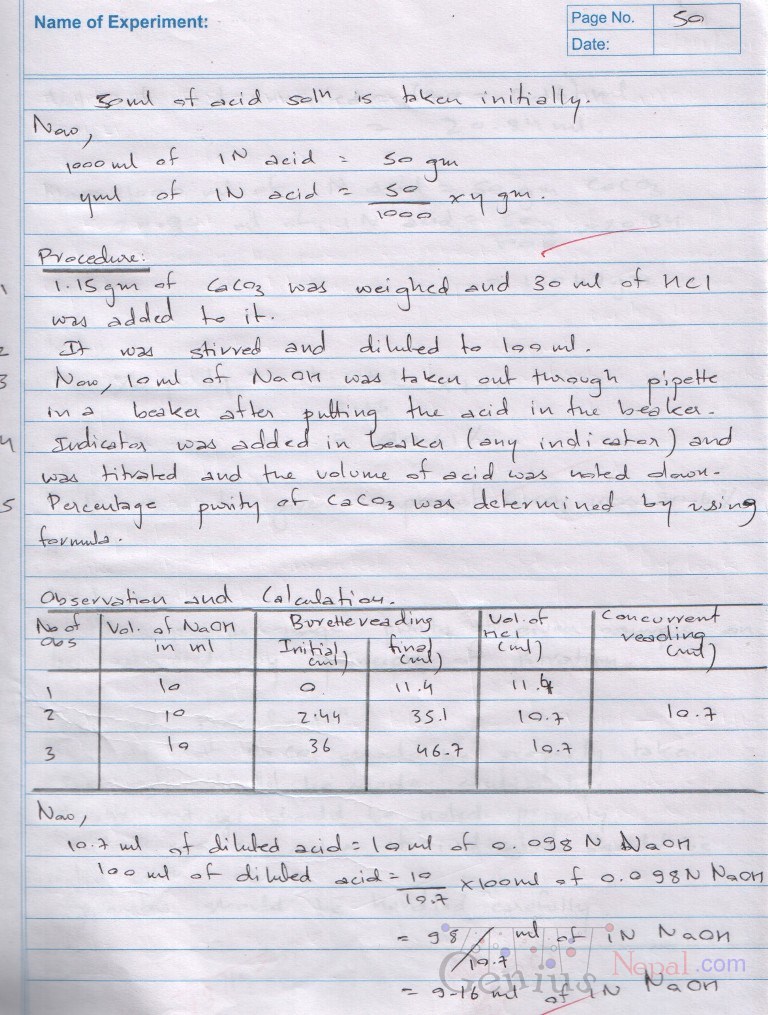 Name of Experiment:
Page No. 50
Date:
50ml of acid soln is taken initially.
Now,
1000 ml of 1N acid = 50 gm
y ml of 1N acid = 50/1000 x y gm.
Procedure:
1 1.15 gm of CaCO3 was weighed and 30 ml of HCl
was added to it.
2 It was stirred and diluted to 100 ml.
3 Now, 10ml of NaOH was taken out through pipette
in a beaker after putting the acid in the beaker.
4 Indicator was added in beaker (any indicator) and
was titrated and the volume of acid was noted down.
5 Percentage purity of CaCO3 was determined by using
formula.
Observation and Calculation.
No of Obs | Vol. of NaOH in ml | Burette reading Initial (ml) | final (ml) | Vol. of HCl (ml) | Concurrent reading (ml)
1 | 10 | 0 | 11.4 | 11.4 |
2 | 10 | 2.44 | 35.1 | 10.7 | 10.7
3 | 10 | 36 | 46.7 | 10.7 |
Now,
10.7 ml of diluted acid = 10 ml of 0.098 N NaOH
100 ml of diluted acid = 10/10.7 x 100 ml of 0.098N NaOH
= 98/10.7 ml of 1N NaOH
= 9.16 ml of 1N NaOH
Genius Nepal.com